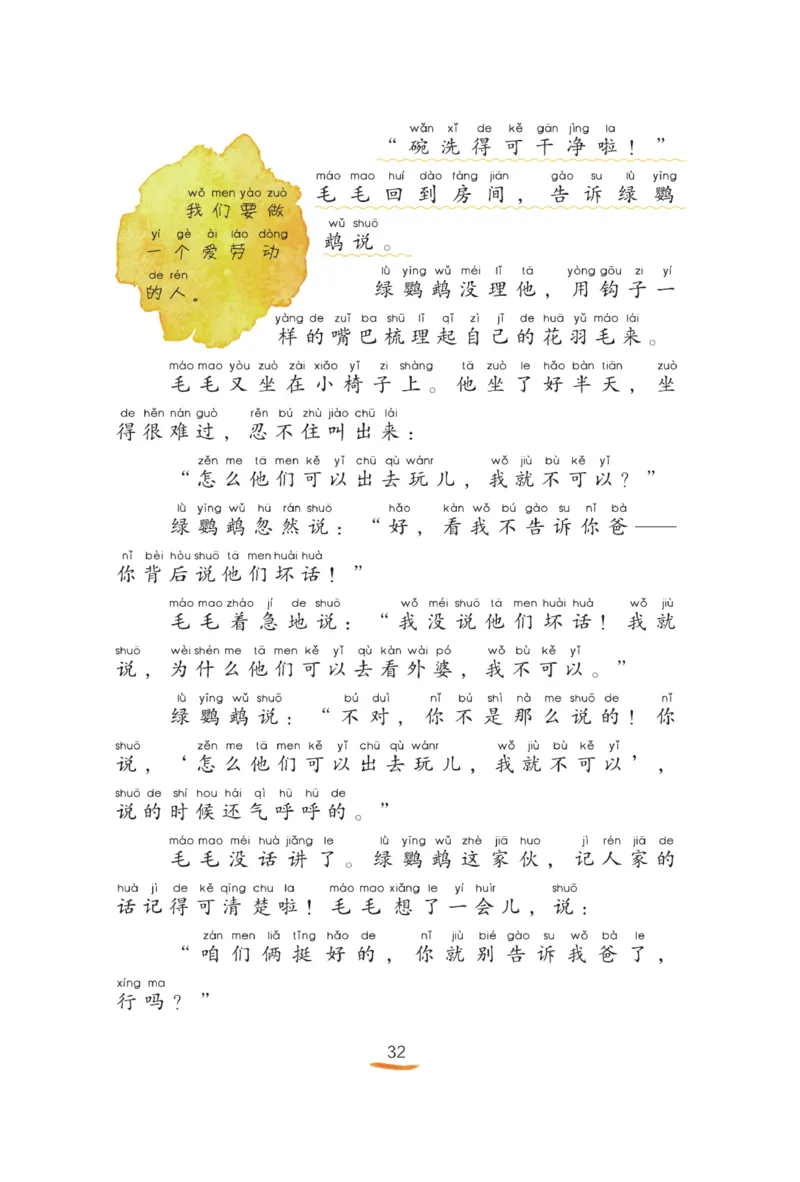 wǒ men yào zuò
我们要做
yí gè ài láo dòng
一个爱劳动
de rén
的人。
wǎn xǐ de kě gān jìng la
“碗洗得可干净啦！”
máo mao huí dào fáng jiān gào su lǜ yīng
毛毛回到房间，告诉绿鹦
wǔ shuō
鹉说。
lǜ yīng wǔ méi lǐ tā yòng gōu zi yí
绿鹦鹉没理他，用钩子一
yàng de zuǐ ba shū lǐ qǐ zì jǐ de huā yǔ máo lái
样的嘴巴梳理起自己的花羽毛来。
máo mao yòu zuò zài xiǎo yǐ zi shàng tā zuò le hǎo bàn tiān zuò
毛毛又坐在小椅子上。他坐了好半天，坐
de hěn nán guò rěn bú zhù jiào chū lái
得很难过，忍不住叫出来：
zěn me tā men kě yǐ chū qù wánr wǒ jiù bù kě yǐ
“怎么他们可以出去玩儿，我就不可以？”
lǜ yīng wǔ hū rán shuō hǎo kàn wǒ bú gào su nǐ bà
绿鹦鹉忽然说：“好，看我不告诉你爸——
nǐ bèi hòu shuō tā men huài huà
你背后说他们坏话！”
máo mao zháo jí de shuō wǒ méi shuō tā men huài huà wǒ jiù
毛毛着急地说：“我没说他们坏话！我就
shuō wèi shén me tā men kě yǐ qù kàn wài pó wǒ bù kě yǐ
说，为什么他们可以去看外婆，我不可以。”
lǜ yīng wǔ shuō bú duì nǐ bú shì nà me shuō de nǐ
绿鹦鹉说：“不对，你不是那么说的！你
shuō zěn me tā men kě yǐ chū qù wánr wǒ jiù bù kě yǐ
说，‘怎么他们可以出去玩儿，我就不可以’，
shuō de shí hou hái qì hū hū de
说的时候还气呼呼的。”
máo mao méi huà jiǎng le lǜ yīng wǔ zhè jiā huo jì rén jiā de
毛毛没话讲了。绿鹦鹉这家伙，记人家的
huà jì de kě qīng chu la máo mao xiǎng le yí huìr shuō
话记得可清楚啦！毛毛想了一会儿，说：
zán men liǎ tǐng hǎo de nǐ jiù bié gào su wǒ bà le
“咱们俩挺好的，你就别告诉我爸了，
xíng ma
行吗？”
32